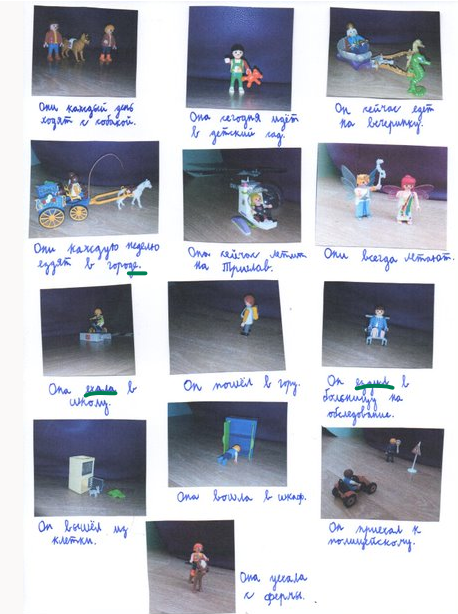 Они каждый день
ходят с собакой.
Она сегодня идёт
в детский сад.
Он сейчас едет
на вечеринку.
Они каждую неделю
ездят в городе.
Она сейчас летит
на Триглав.
Они всегда летают.
Она ехала в
школу.
Он пошёл в гору.
Он ездил в
больницу на
обследование.
Он вышел из
клетки.
Она вошла в шкаф.
Он приехал к
полицейскому.
Она уехала
с фермы.